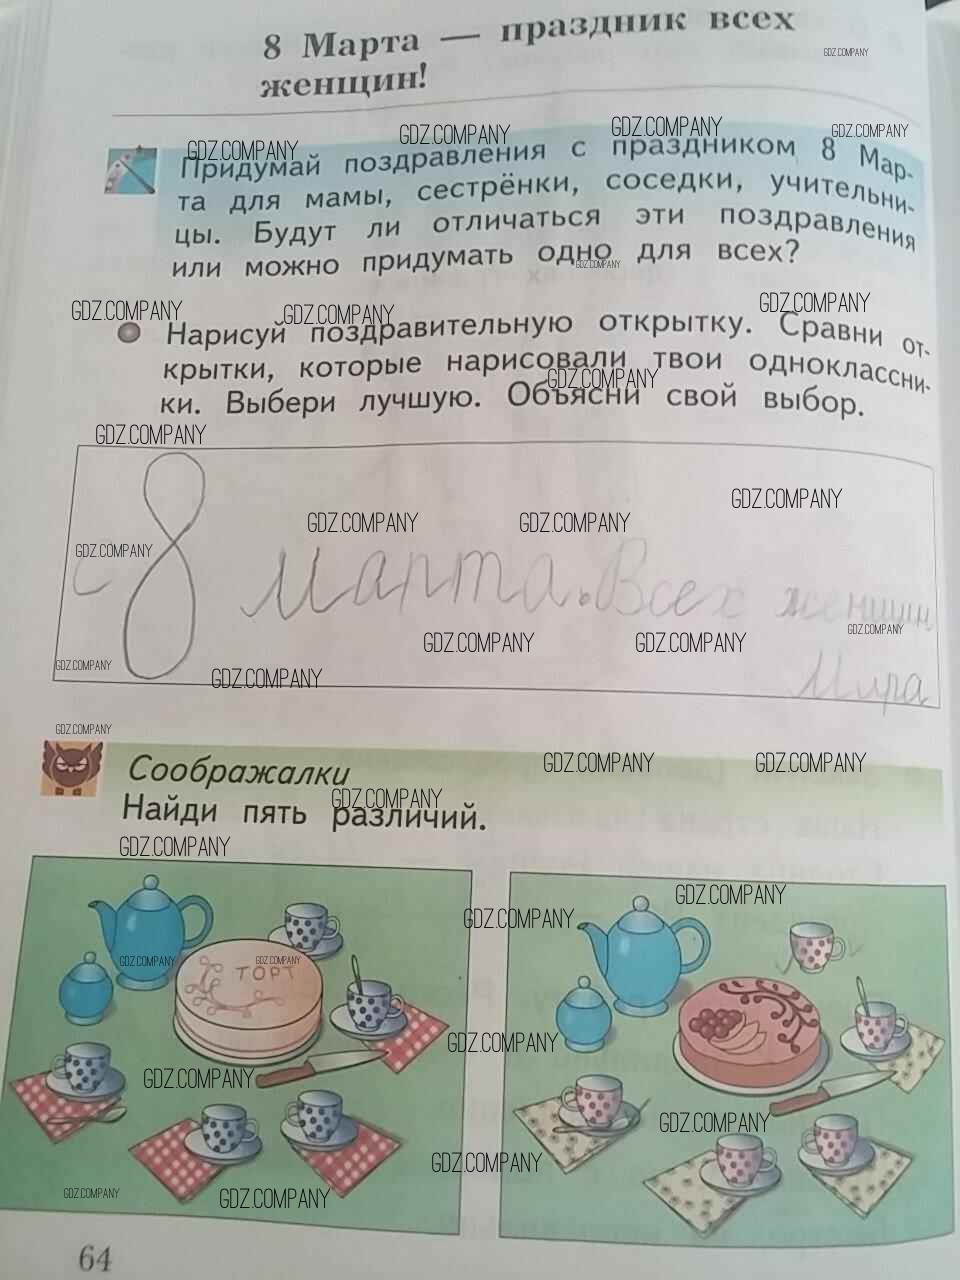 8 Марта — праздник всех
женщин!
GDZ.COMPANY
GDZ.COMPANY GDZ.COMPANY GDZ.COMPANY GDZ.COMPANY
Придумай поздравления с праздником 8 Мар-
та для мамы, сестрёнки, соседки, учительни-
цы. Будут ли отличаться эти поздравления
или можно придумать одно для всех?
GDZ.COMPANY
GDZ.COMPANY GDZ.COMPANY GDZ.COMPANY
Нарисуй поздравительную открытку. Сравни от-
крытки, которые нарисовали твои одноклассни-
GDZ.COMPANY
ки. Выбери лучшую. Объясни свой выбор.
GDZ.COMPANY
GDZ.COMPANY
GDZ.COMPANY GDZ.COMPANY
GDZ.COMPANY
с 8 марта. Всех женщин
GDZ.COMPANY
GDZ.COMPANY GDZ.COMPANY
GDZ.COMPANY GDZ.COMPANY
Мира
GDZ.COMPANY
Соображалки
GDZ.COMPANY GDZ.COMPANY
GDZ.COMPANY
Найди пять различий.
GDZ.COMPANY
GDZ.COMPANY
GDZ.COMPANY
GDZ.COMPANY GDZ.COMPANY
ТОРТ
GDZ.COMPANY
GDZ.COMPANY
GDZ.COMPANY
GDZ.COMPANY
GDZ.COMPANY GDZ.COMPANY
64